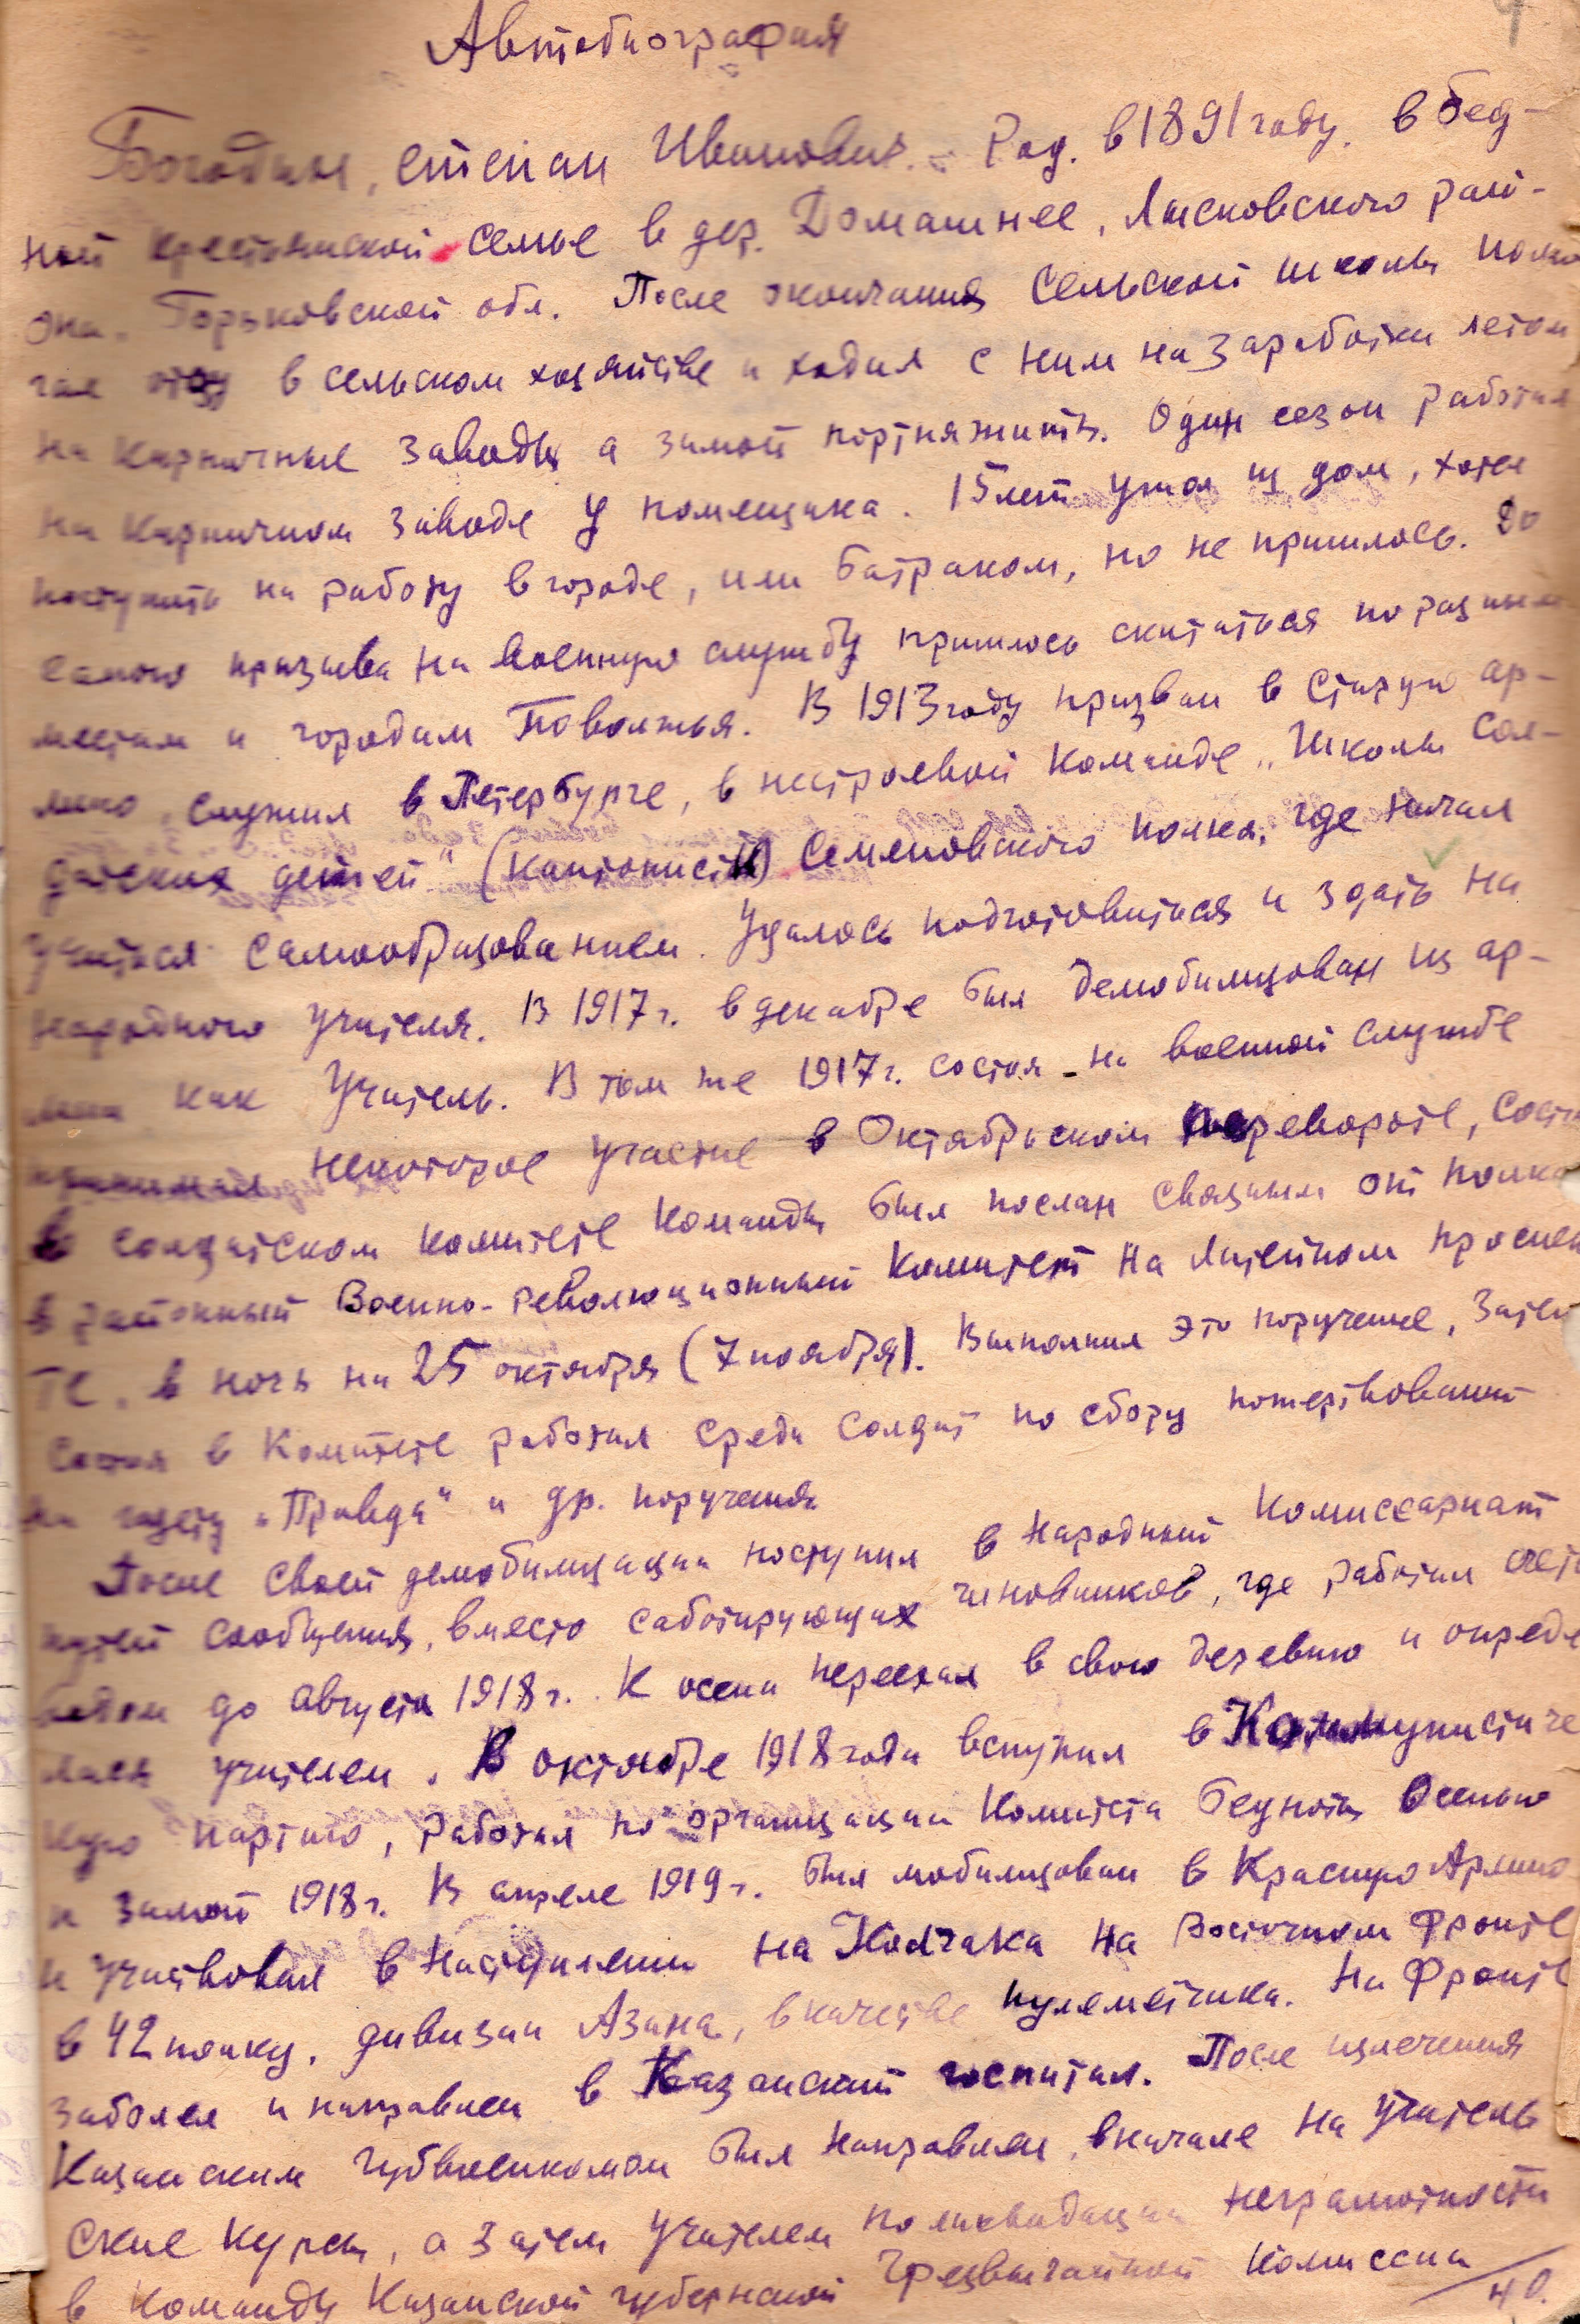 Автобиография
Богодин, степан Иванович. - Род. в 1891 году. в бед-
ной крестьянской семье в дер. Домашнее, Лысковского рай-
она. Горьковской обл. После окончания сельской школы помо
гал отцу в сельском хозяйстве и ходил с ним на заработки летом
на кирпичные заводы а зимой портняжить. Один сезон работал
на кирпичном заводе у помещика. 15 лет ушол из дом, хотел
поступить на работу в городе, или батраком, но не пришлось. До
самого призыва на военную службу пришлось скитаться по разным
местам и городам Поволжья. В 1913 году призван в старую ар-
мию, служил в Петербурге, в нестроевой команде „Школы сол-
датских детей" (кантонисты) Семеновского полка, где начал
учиться самообразованием. Удалось подготовиться и здать на
народного учителя. В 1917 г. в декабре был демобилизован из ар-
мии как учитель. В том же 1917 г. состоя на военной службе
принимал некоторое участие в Октябрьском перевороте, состоя
в солдатском комитете команды был послан связным от полка
в районный Военно-революционный комитет на Литейном проспек
те, в ночь на 25 октября (7 ноября). Выполнил это поручение, затем
состоя в комитете работал среди солдат по сбору пожертвований
на газету „Правда" и др. поручения
После своей демобилизации поступил в Народный Комиссариат
путей сообщения, вместо саботирующих чиновников, где работал счето
водом до августа 1918 г. К осени переехал в свою деревню и опреде
лился учителем. В октябре 1918 года вступил в Коммунистиче
кую партию, работал по организации Комитета бедноты осенью
и зимой 1918 г. В апреле 1919 г. был мобилизован в Красную Армию
и участвовал в наступлении на Колчака на Восточном фронте
в 42 полку, дивизии Азина, в качестве пулеметчика. На фронте
заболел и направлен в Казанский госпитал. После излечения
Казанским губвоенкомом был направлен, вначале на учитель
ские курсы, а затем учителем по ликвидации неграмотности
в команду Казанской губернской Чрезвычайной комиссии